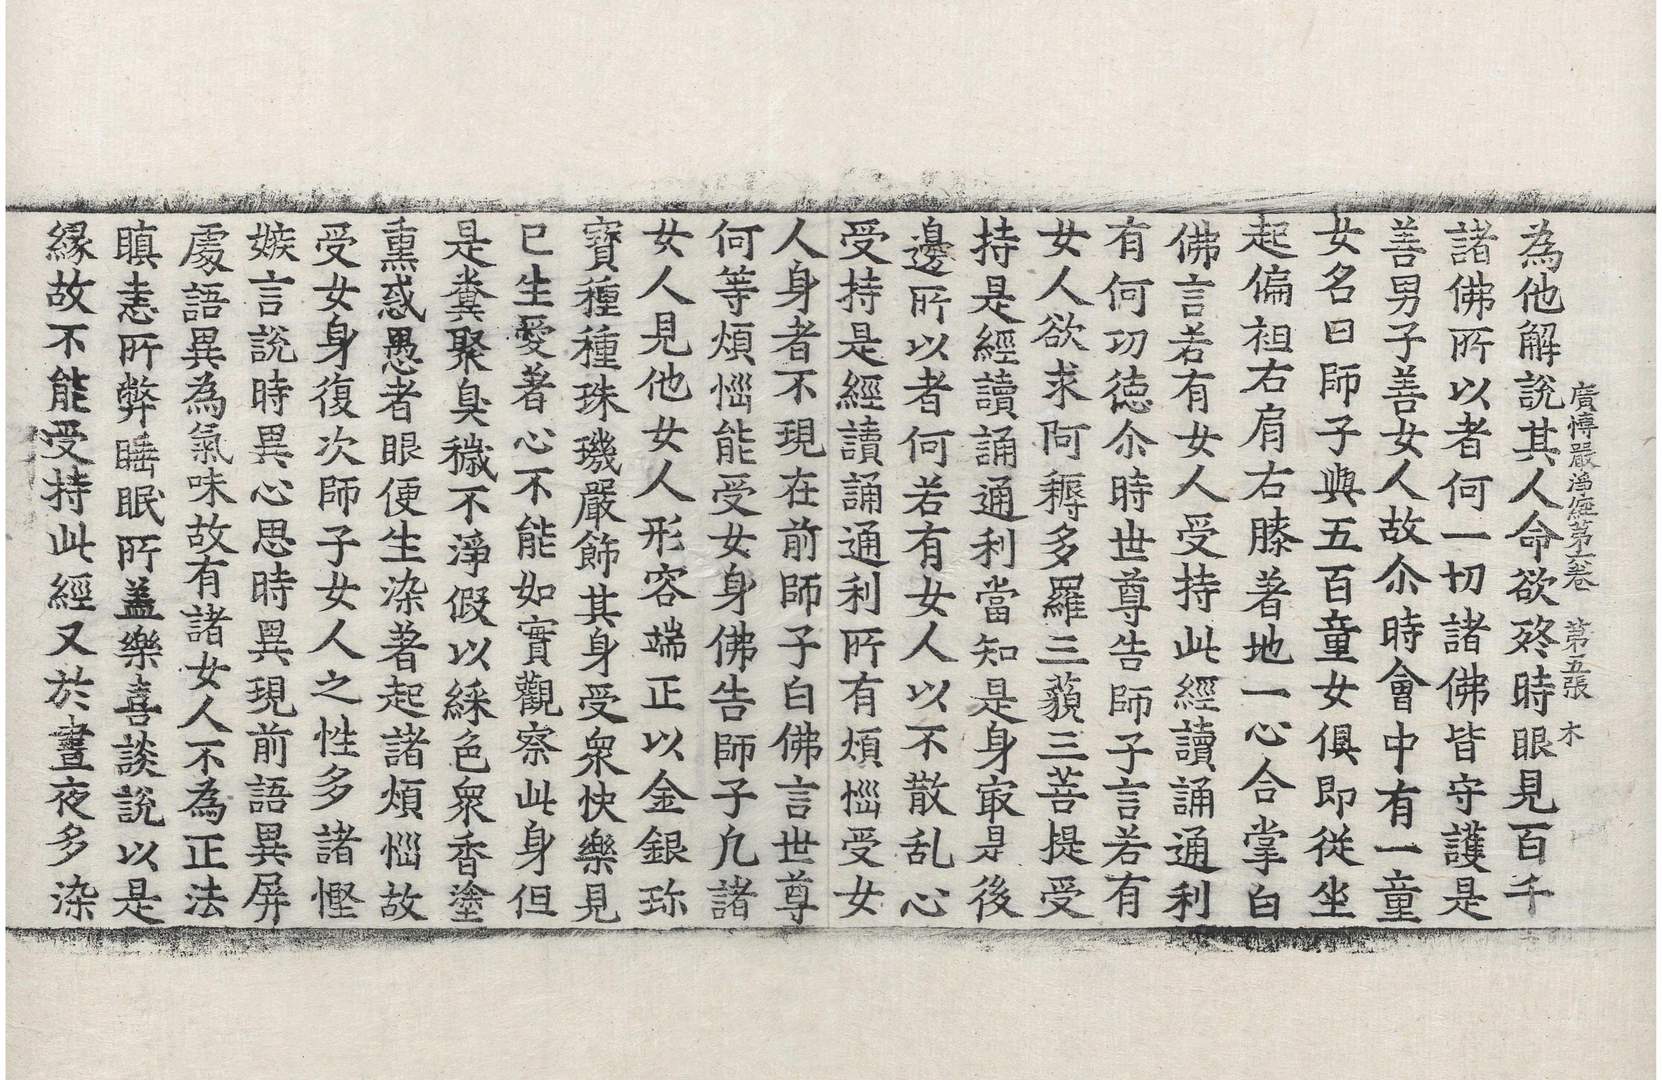 廣博嚴淨經苐六卷 苐五張 木
為他解說其人命欲終時眼見百千
諸佛所以者何一切諸佛皆守護是
善男子善女人故尒時會中有一童
女名曰師子與五百童女俱即從坐
起偏袒右肩右膝著地一心合掌白
佛言若有女人受持此經讀誦通利
有何功德尒時世尊告師子言若有
女人欲求阿耨多羅三藐三菩提受
持是經讀誦通利當知是身㝡是後
邊所以者何若有女人以不散乱心
受持是經讀誦通利所有煩惱受女
人身者不現在前師子白佛言世尊
何等煩惱能受女身佛告師子凡諸
女人見他女人形容端正以金銀珎
寶種種珠璣嚴飾其身受衆快樂見
已生愛著心不能如實觀察此身但
是糞聚臭穢不淨假以綵色衆香塗
熏惑愚者眼便生染著起諸煩惱故
受女身復次師子女人之性多諸慳
嫉言說時異心思時異現前語異屏
處語異為氣味故有諸女人不為正法
瞋恚所弊睡眠所盖樂喜談說以是
緣故不能受持此經又於晝夜多染